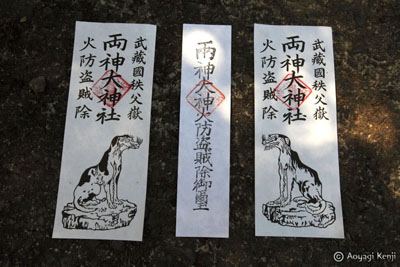 武藏國秩父嶽
両神大神社
火防盗賊除
両神大神火防盗賊除御璽
武藏國秩父嶽
両神大神社
火防盗賊除
© Aoyagi Kenji